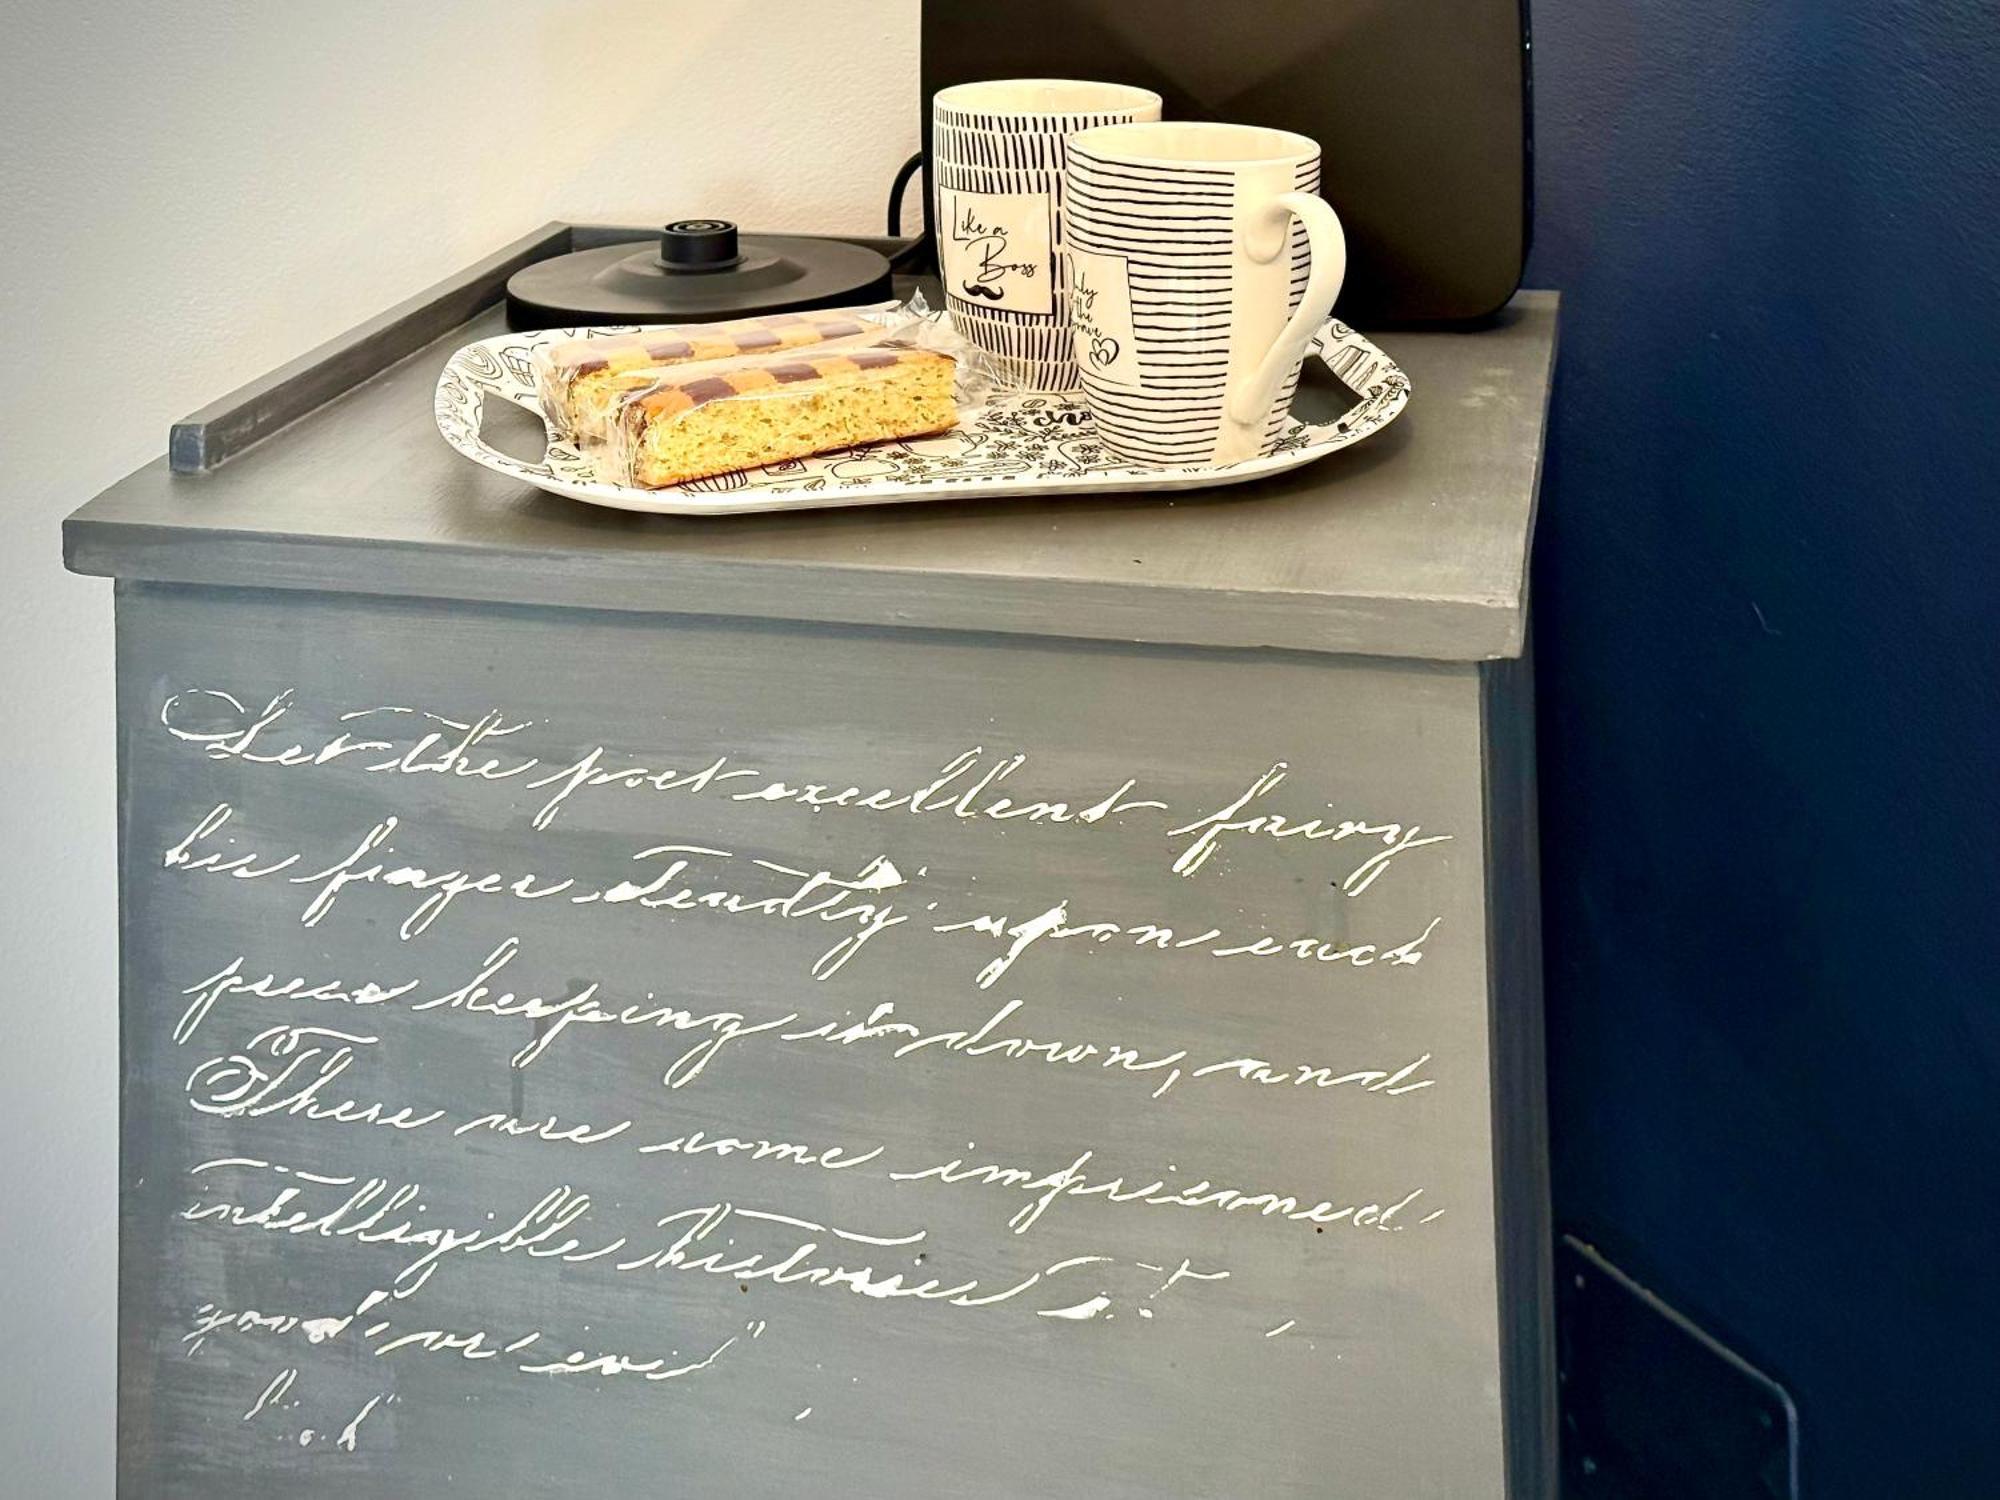 Like a
Boss
Only
the
Let the poet excellent fairy
his finger steadly upon each
keeping it down, and
There are some imprisoned
intelligible histories
good or evil"